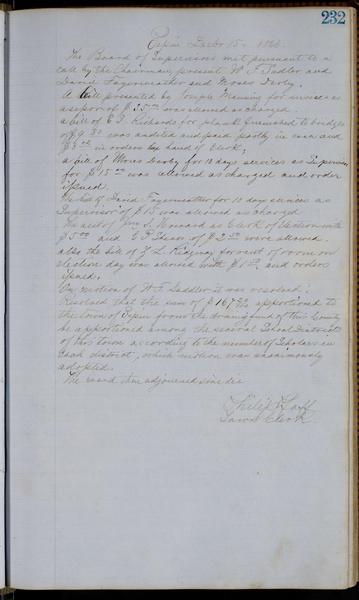 232
Pepin Dec 15 1866
The Board of Supervisors met pursuant to a
call by the Chairman present W. F. Sadler and
David Fayerweather and Moses Derby.
A Bill presented by Joseph for services as
of $35.00 was allowed as charged
a bill of Richards for plank furnished to bridges
of $9 was audited and paid partly in and
in orders by hand of Clerk,
a bill of Moses Derby for 10 days services as Supervisor
for $15.00 was allowed as charged and order
issued.
The bill of David Fayerweather for 10 days services as
Supervisor of $15 was allowed as charged
The acct of Jno S. Howard as Clerk of Election with
$5.00 and of $2.50 were allowed.
also the bill of Ridgway for rent of room on
election day was allowed with $1 and orders
issued.
On motion of W. F. Saddler it was resolved:
Resolved that the sum of $167 apportioned to
the town of Pepin from the fund of this County
be apportioned among the several School Districts
of this town according to the number of Scholars in
each district, which motion was unanimously
adopted.
The board then adjourned sine die
Philip
Town Clerk